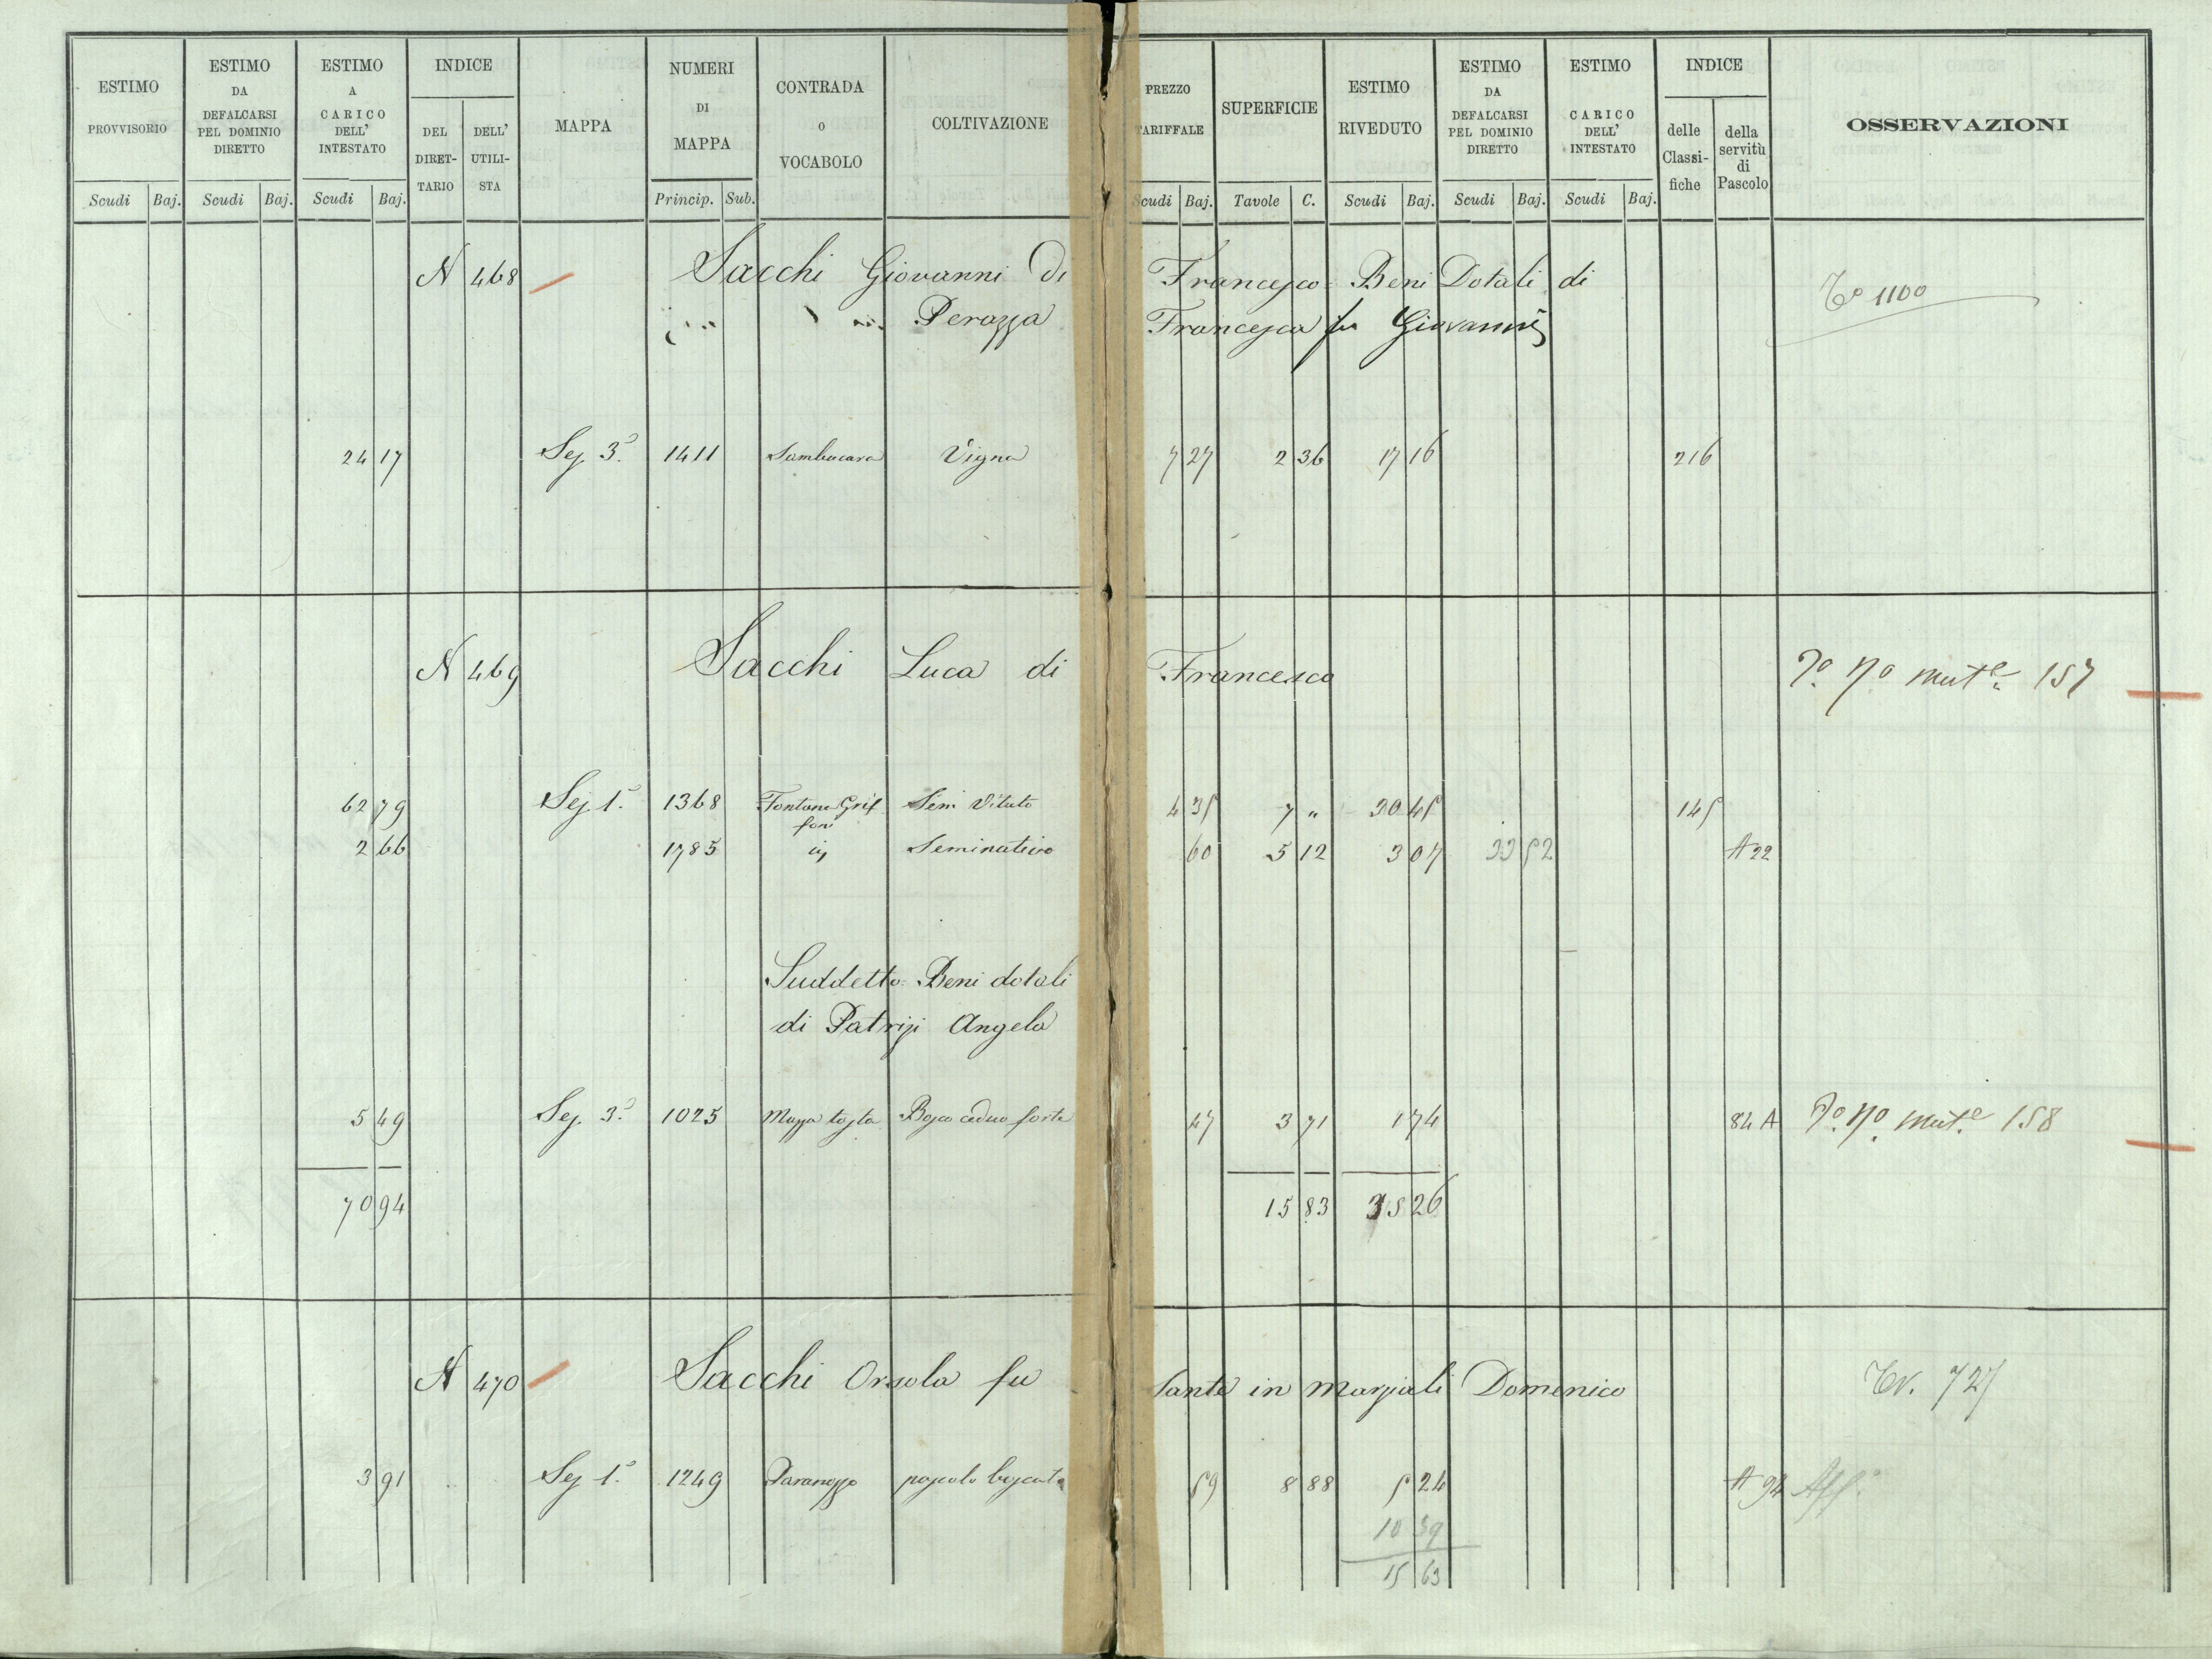 ESTIMO PROVVISORIO Scudi Baj.
ESTIMO DA DEFALCARSI PEL DOMINIO DIRETTO Scudi Baj.
ESTIMO A CARICO DELL' INTESTATO Scudi Baj.
INDICE DEL DIRET-TARIO DELL' UTILI-STA
MAPPA
NUMERI DI MAPPA Princip. Sub.
CONTRADA o VOCABOLO
COLTIVAZIONE
PREZZO TARIFFALE Scudi Baj.
SUPERFICIE Tavole C.
ESTIMO RIVEDUTO Scudi Baj.
ESTIMO DA DEFALCARSI PEL DOMINIO DIRETTO Scudi Baj.
ESTIMO CARICO DELL' INTESTATO Scudi Baj.
INDICE delle Classi-fiche della servitù di Pascolo
OSSERVAZIONI
N 468 Sacchi Giovanni di Francesco = Beni Dotali di 1100
Perazza Francesca fu Giovanni
24 17 Sez. 3ª 1411 Sambucara Vigna 7 27 2 36 17 16 216
N 469 Sacchi Luca di Francesco 157
62 79 Sez. 1ª 1368 Fontana Grif Sem Vitato 4 35 7 " 30 45 145
foni
2 66 1785 Seminativo 60 5 12 3 07 33 52 A 22
Suddetto = Beni dotali
di Patrizi Angela
5 49 Sez. 3ª 1025 Mazza tosta Bosco ceduo forte 47 3 71 1 74 84 A 158
70 94 15 83 35 26
N 470 Sacchi Orsola fu Sante in Marziali Domenico 727
3 91 Sez. 1ª 1249 pascolo boscato 59 8 88 5 24 A 94
10 39
15 63